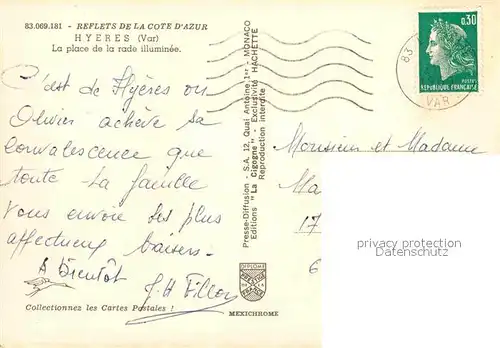 83.069.181 - REFLETS DE LA COTE D'AZUR
HYERES (Var)
La place de la rade illuminée.
C'est de Hyères ou
Olivier achève sa
convalescence que
toute la famille
vous envoie ses plus
affectueux baisers.
A Bientôt
J.H
Collectionnez les Cartes Postales !
Presse-Diffusion - S.A. 12, Quai Antoine 1er - MONACO
Editions "La Cigogne" - Exclusivité HACHETTE
Reproduction interdite
DIPLOME
PRESTIGE
FRANCE
MEXICHROME
83
VAR
0,30
POSTES
REPUBLIQUE FRANÇAISE
Monsieur et Madame
Ma
17
6
privacy protection
Datenschutz